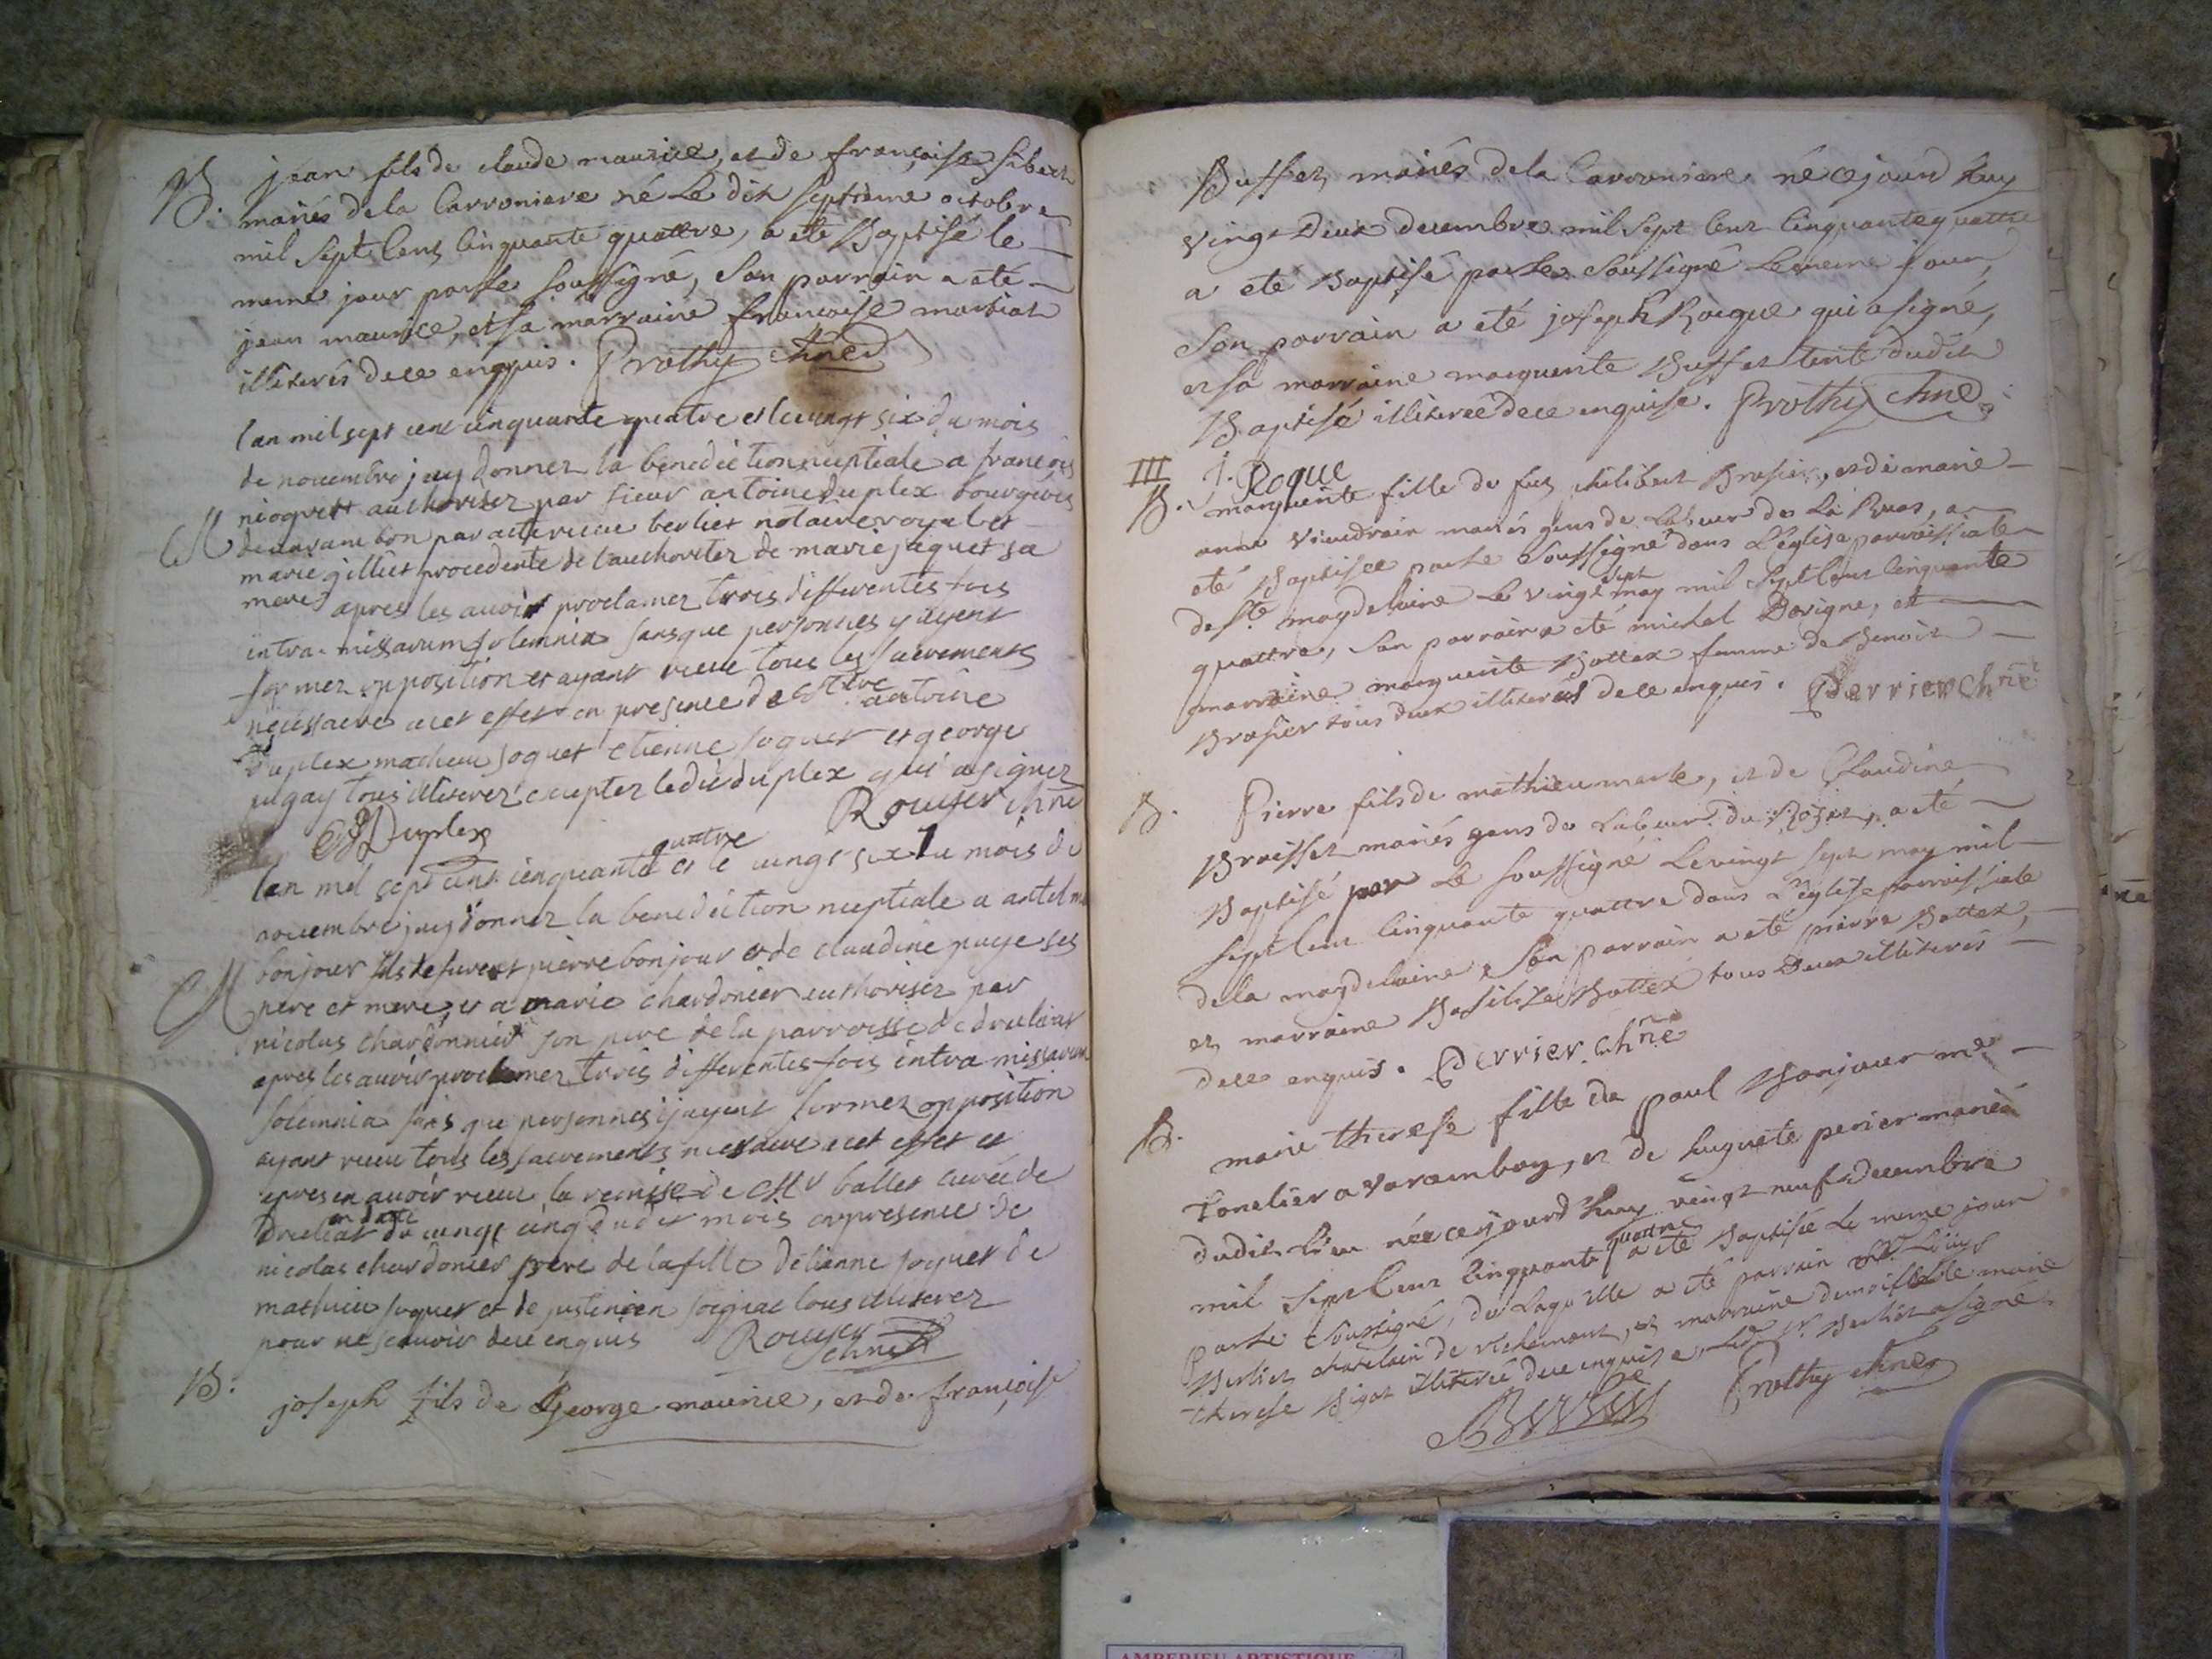 B. jean fils de claude maurice, et de françoise Gibert
mariés de la Carroniere né Le dix septieme octobre
mil sept Cens Cinquante quattre, a eté Baptisé le
meme jour par le soussigné, Son parrain a eté
jean maurice, et sa marraine francoise
illiterés de ce enquis. Prothy chne
lan mil sept cent cinquante quatre et le vingt six du mois
de novembre jay donner la benediction nuptiale a françois
niogret authoriser par sieur antoine duplex bourgeois
M de varambon par acte recue berliet notaire royal et
marie gilliet procedente de lauthoriter de marie jaquet sa
mere apres les auoir proclamer trois differentes fois
intra missarum solemnia sans que personnes y ayent
former opposition et ayant recue tous les sacrements
necessaire a cet effet en presence de antoine
duplex mathieu joguet etienne joguet et george
tous illiterez excepter le dit duplex qui a signez
Duplex Rouyer chne
lan mil sept cent cinquante quatre et le vingt six du mois de
novembre jay donner la benediction nuptiale a antelme
bonjour fils de pierre bonjour et de claudine puge ses
M pere et mere, et a marie chardonier authoriser par
nicolas chardonnier son pere de la parroisse de druliat
apres les auoir proclamer trois differentes fois intra missarum
solemnia sans que personnes y ayent former opposition
ayant recue tous les sacrements necessaire a cet effet et
apres en auoir recue la remise de Mr ballet curé de
druliat en date du vingt cinq dudit mois en presence de
nicolas chardonier pere de la fille detienne joguet de
mathieu joguet et de tous illiterez
pour ne scauoir de ce enquis Rouyer
chne
B. joseph fils de George maurice, et de françoise
Buffet, mariés de la Carroniere né cejourd huy
vingt Deux decembre mil sept Cens Cinquante quattre
a eté Baptisé par le Soussigné Le meme jour,
Son parrain a eté joseph Roigue qui a signé,
et sa marraine marguerite Buffet tente dudit
Baptisé illiterée de ce enquise. Prothy chne
J. Roque
III
B. marguerite fille de feu philibert Brasier, et de marie
anne Vieudrain mariés gens de Labeur de La Ruas, a
eté Baptisee par le Soussigné dans L'église parroissiale
de Ste magdelaine Le vingt sept may mil Sept Cens Cinquante
quattre, Son parrain a eté michel Darigne, et
marraine marguerite Bottex femme de Benoit
Brasier tous deux illiterés de ce enquis. Perrier chne
B. Pierre fils de mathieu marle, et de Claudine
Braisset mariés gens de Labeur du a eté
Baptisé par Le Soussigné Le vingt sept may mil
Sept Cens Cinquante quattre dans L'eglise parroissiale
de la magdelaine, Son parrain a eté pierre Bottex,
et marraine Basilize Bottex tous deux illiterés
de ce enquis. Perrier chne
B. marie therese fille de paul Bonjour me
tonelier a Varambon, et de huguete perier mariés
dudit Lieu née cejourd huy vingt neuf decembre
mil Sept Cens Cinquante quattre a eté Baptisée Le meme jour
par le Soussigné, de Laquelle a eté parrain Louis
Berliet chatelain de richemont, et marraine demoiselle marie
therese Bigot illiterée de ce enquise, Led. Sr. Berliet a signé.
Berliet Prothy chne
AMBERIEU ARTISTIQUE